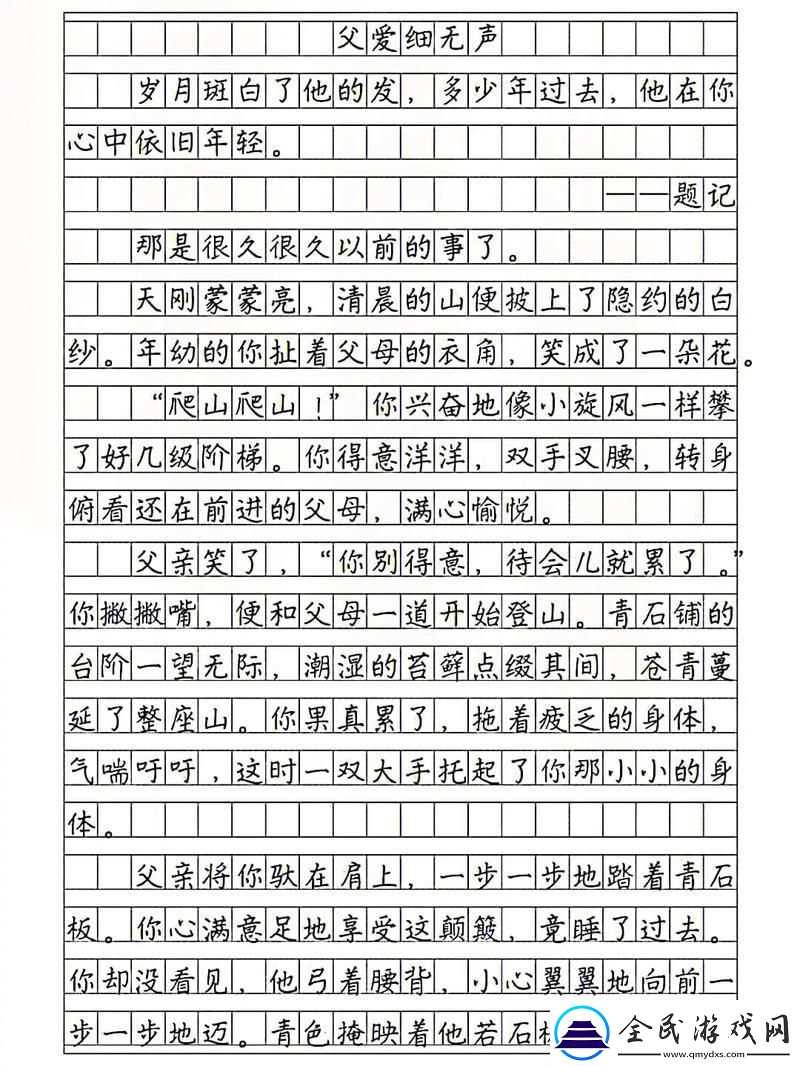 父爱细无声
岁月斑白了他的发，多少年过去，他在你
心中依旧年轻。
——题记
那是很久很久以前的事了。
天刚蒙蒙亮，清晨的山便披上了隐约的白
纱。年幼的你扯着父母的衣角，笑成了一朵花。
“爬山爬山！”你兴奋地像小旋风一样攀
了好几级阶梯。你得意洋洋，双手叉腰，转身
俯看还在前进的父母，满心愉悦。
父亲笑了，“你别得意，待会儿就累了。”
你撇撇嘴，便和父母一道开始登山。青石铺的
台阶一望无际，潮湿的苔藓点缀其间，苍青蔓
延了整座山。你果真累了，拖着疲乏的身体，
气喘吁吁，这时一双大手托起了你那小小的身
体。
父亲将你驮在肩上，一步一步地踏着青石
板。你心满意足地享受这颠簸，竟睡了过去。
你却没看见，他弓着腰背，小心翼翼地向前一
步一步地迈。青色掩映着他若石
全民游戏网
www.qmydxs.com